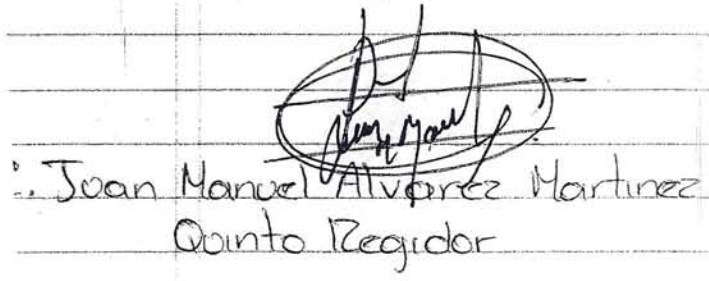 Juan Manuel Alvarez Martinez
Quinto Regidor